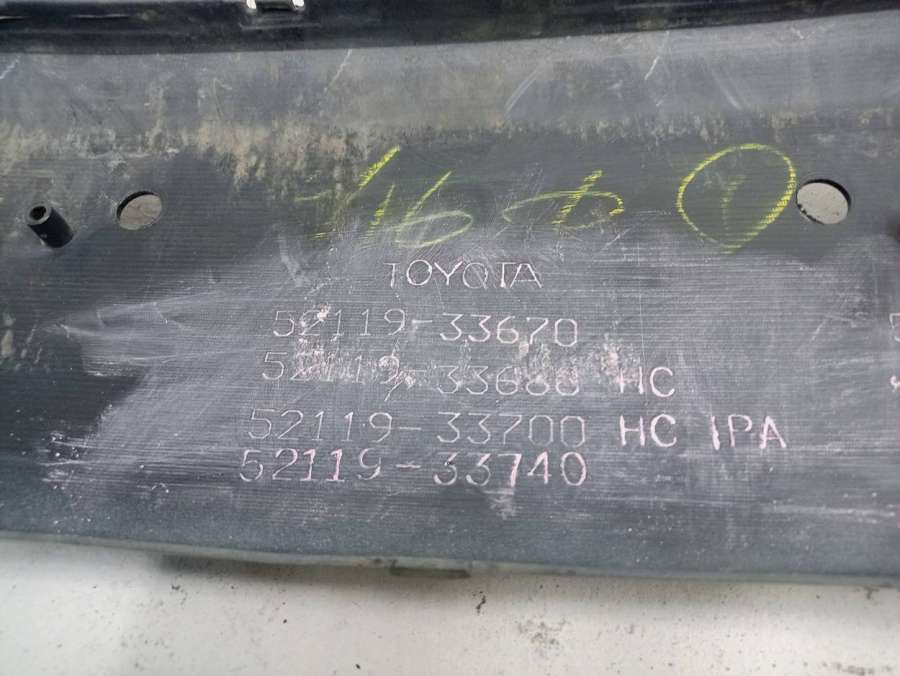 TOYOTA
52119-33670
52119-33680 HC
52119-33700 HC IPA
52119-33740